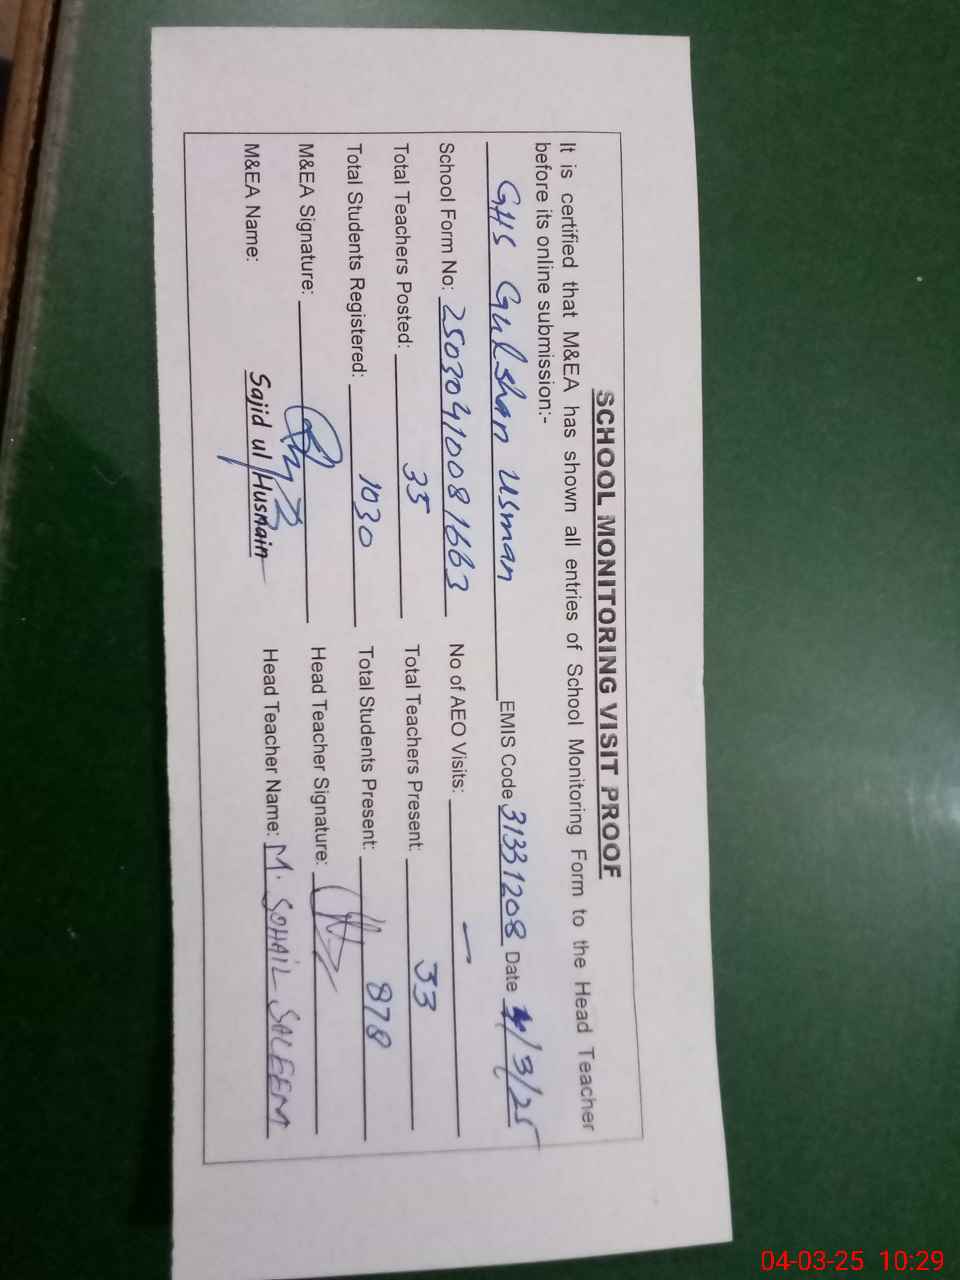 SCHOOL MONITORING VISIT PROOF
It is certified that M&EA has shown all entries of School Monitoring Form to the Head Teacher
before its online submission:-
GHS Gulshan Usman EMIS Code 31331208 Date 4/3/25
School Form No: 25030410081663 No of AEO Visits: —
Total Teachers Posted: 35 Total Teachers Present: 33
Total Students Registered: 1030 Total Students Present: 878
M&EA Signature: Head Teacher Signature:
M&EA Name: Sajid ul Husnain Head Teacher Name: M. SOHAIL SALEEM
04-03-25 10:29